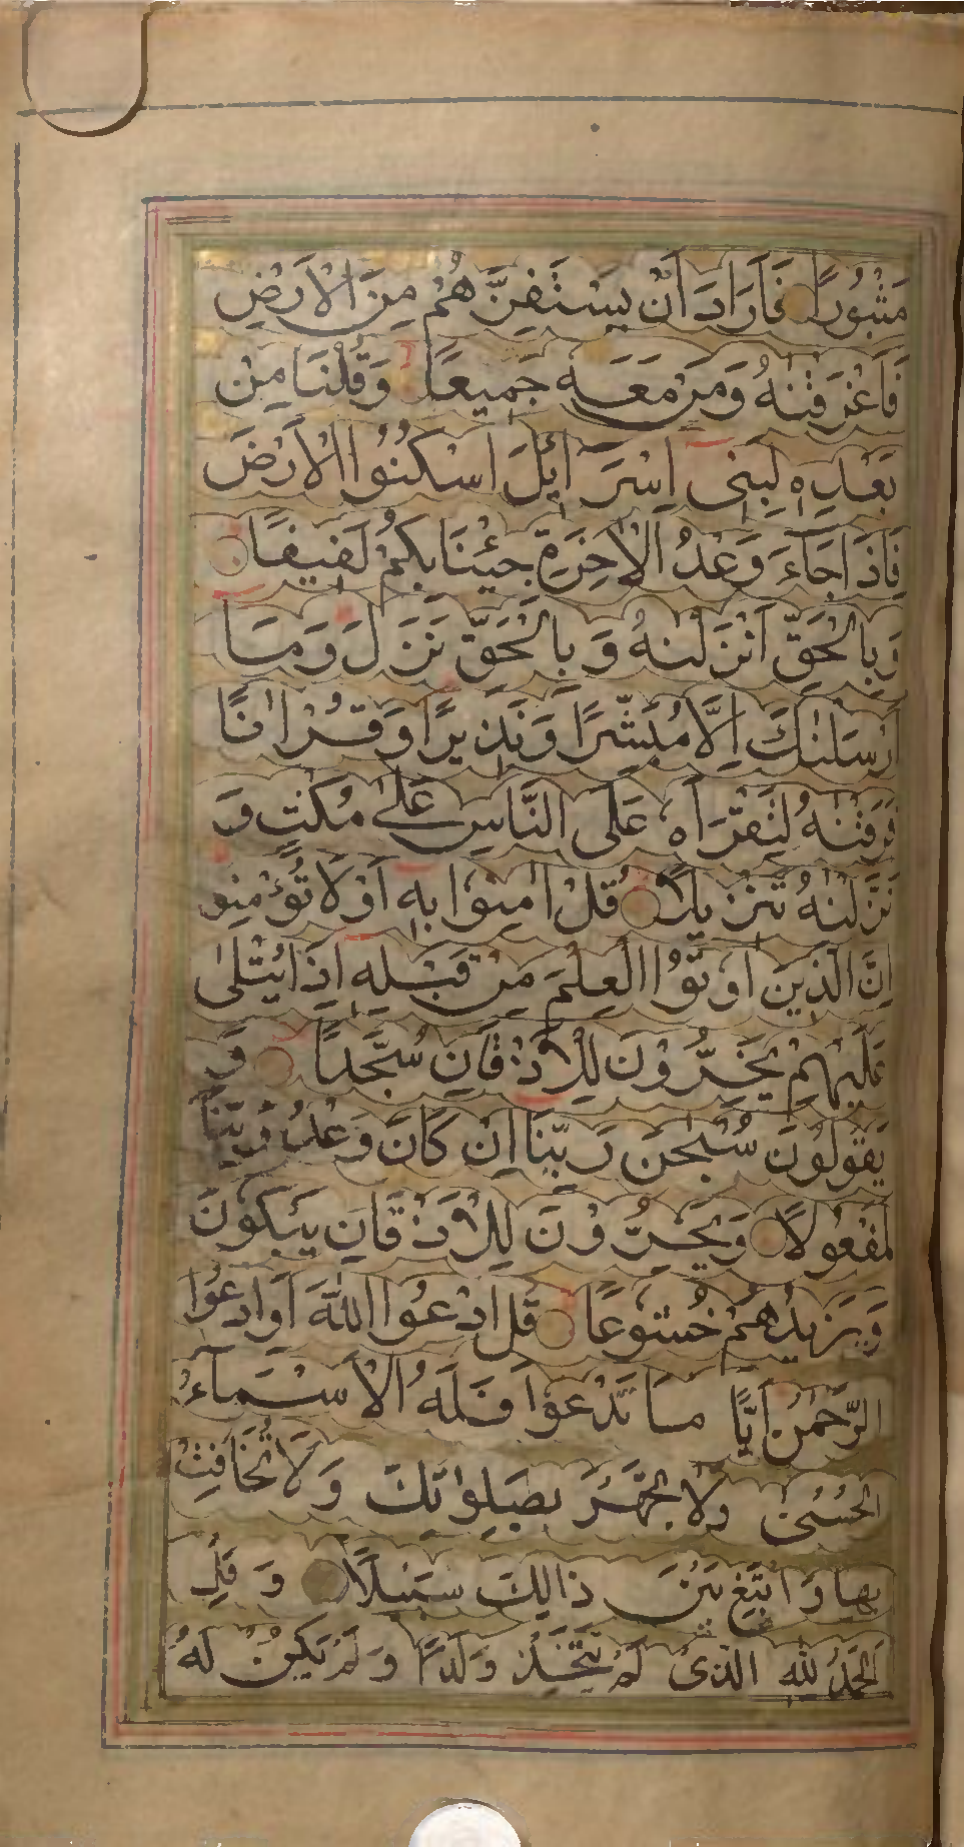 مَثْبُورًا فَاَرَادَ اَنْ يَسْتَفِزَّهُمْ مِنَ الْاَرْضِ
فَاَغْرَقْنٰهُ وَمَنْ مَعَهُ جَمِيعًا وَقُلْنَا مِنْ
بَعْدِهٖ لِبَنِى اِسْرَائِلَ اسْكُنُوا الْاَرْضَ
فَاِذَا جَاءَ وَعْدُ الْاٰخِرَةِ جِئْنَا بِكُمْ لَفِيفًا
وَبِالْحَقِّ اَنْزَلْنٰهُ وَبِالْحَقِّ نَزَلَ وَمَا
اَرْسَلْنٰكَ اِلَّا مُبَشِّرًا وَنَذِيرًا وَقُرْاٰنًا
فَرَقْنٰهُ لِتَقْرَاَهُ عَلَى النَّاسِ عَلٰى مُكْثٍ وَ
نَزَّلْنٰهُ تَنْزِيلًا قُلْ اٰمِنُوا بِهٖ اَوْ لَا تُؤْمِنُو
اِنَّ الَّذِينَ اُوتُوا الْعِلْمَ مِنْ قَبْلِهٖ اِذَا يُتْلٰى
عَلَيْهِمْ يَخِرُّوْنَ لِلْاَذْقَانِ سُجَّدًا وَ
يَقُولُونَ سُبْحٰنَ رَبِّنَا اِنْ كَانَ وَعْدُ رَبِّنَا
لَمَفْعُولًا وَيَخِرُّوْنَ لِلْاَذْقَانِ يَبْكُونَ
وَيَزِيدُهُمْ خُشُوعًا قُلِ ادْعُوا اللّٰهَ اَوِ ادْعُوا
الرَّحْمٰنَ اَيًّا مَا تَدْعُوْا فَلَهُ الْاَسْمَاءُ
الْحُسْنٰى وَلَا تَجْهَرْ بِصَلٰوتِكَ وَلَا تُخَافِتْ
بِهَا وَابْتَغِ بَيْنَ ذَالِكَ سَبِيلًا وَ قُلِ
الْحَمْدُ لِلّٰهِ الَّذِى لَمْ يَتَّخِذْ وَلَدًا وَلَمْ يَكُنْ لَهُ